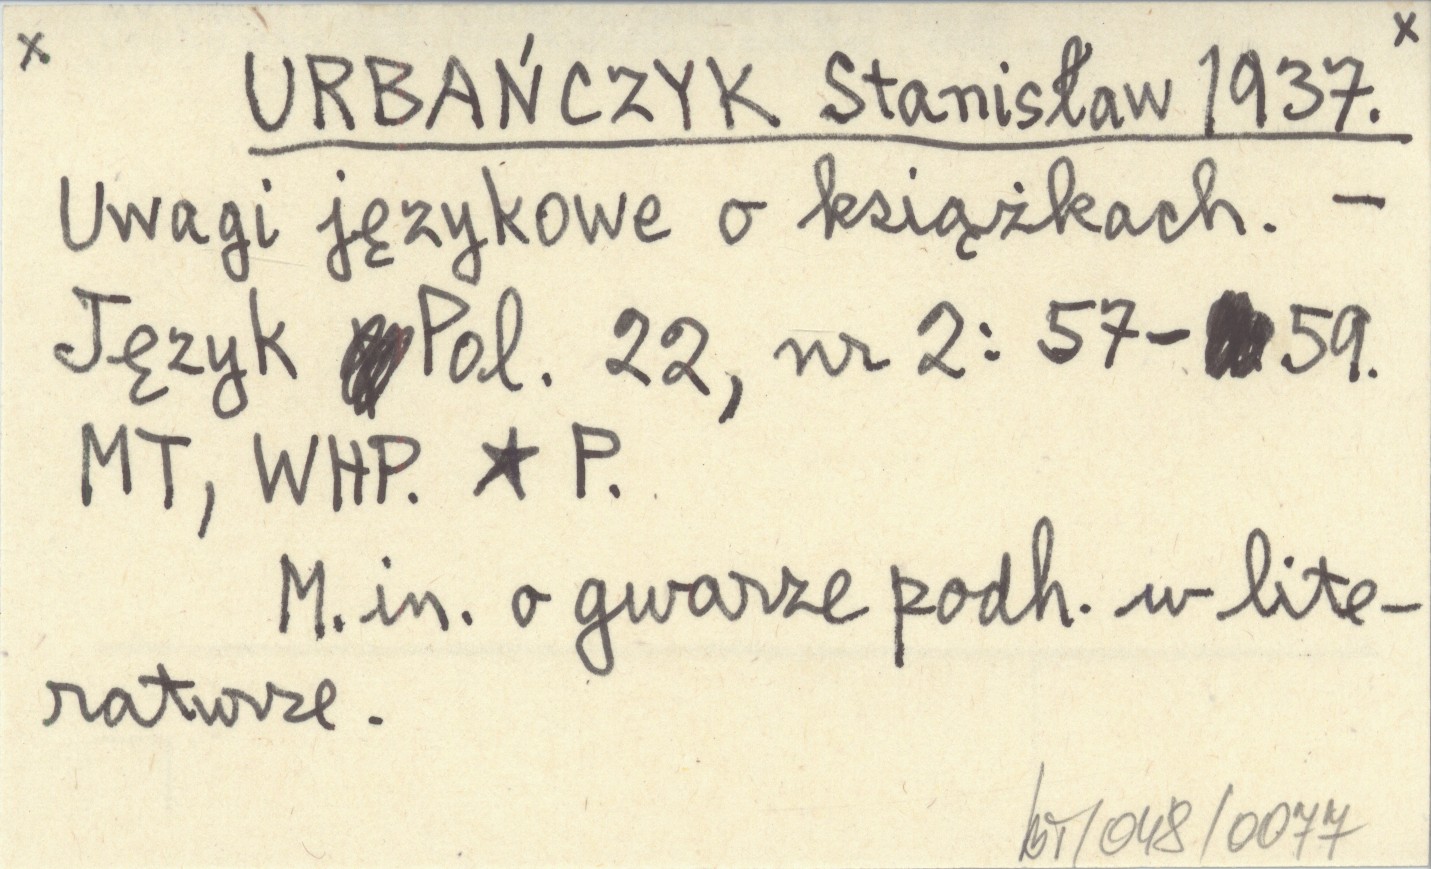 x x
URBAŃCZYK Stanisław 1937.
Uwagi językowe o książkach. –
Język Pol. 22, nr 2: 57-59.
MT, WHP. ★ P.
M. in. o gwarze podh. w lite-
raturze.
/048/0077